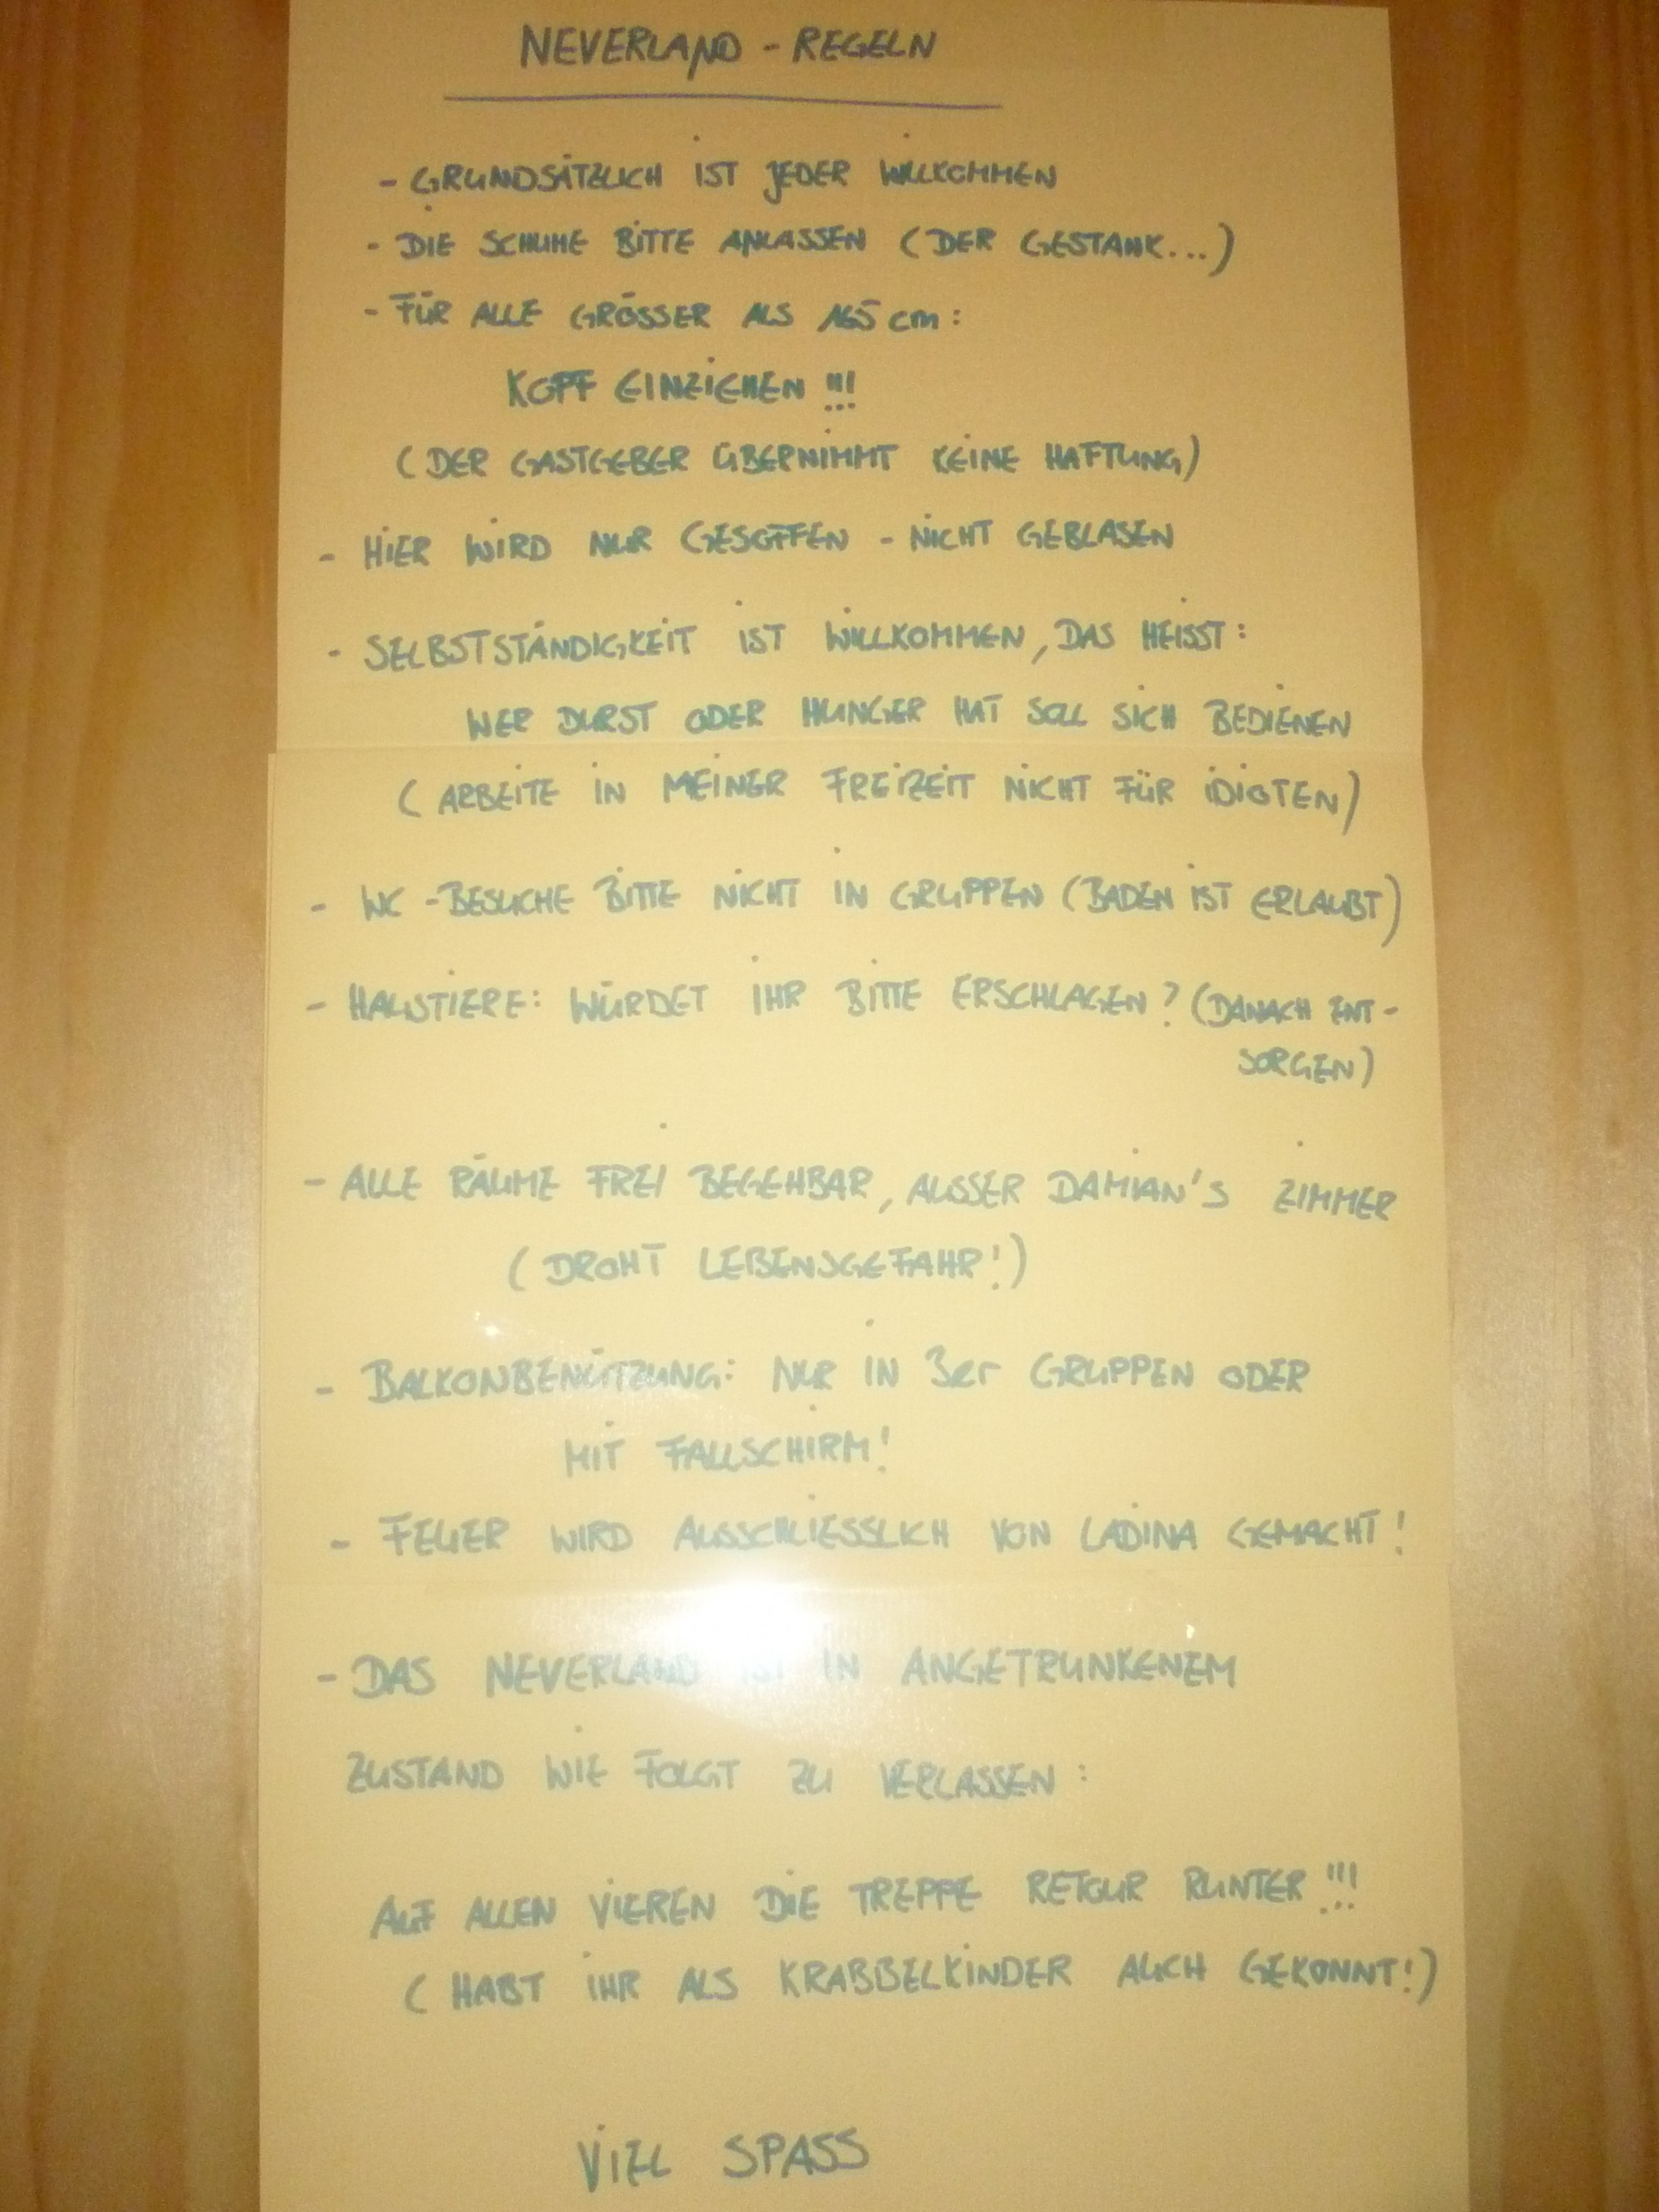 NEVERLAND - REGELN
- GRUNDSÄTZLICH IST JEDER WILLKOMMEN
- DIE SCHUHE BITTE ANLASSEN (DER GESTANK...)
- FÜR ALLE GRÖSSER ALS 165 cm:
KOPF EINZIEHEN !!!
(DER GASTGEBER ÜBERNIMMT KEINE HAFTUNG)
- HIER WIRD NUR GESOFFEN - NICHT GEBLASEN
- SELBSTSTÄNDIGKEIT IST WILLKOMMEN, DAS HEISST:
WER DURST ODER HUNGER HAT SOLL SICH BEDIENEN
(ARBEITE IN MEINER FREIZEIT NICHT FÜR IDIOTEN)
- WC-BESUCHE BITTE NICHT IN GRUPPEN (BADEN IST ERLAUBT)
- HAUSTIERE: WÜRDET IHR BITTE ERSCHLAGEN? (DANACH ENT-
SORGEN)
- ALLE RÄUME FREI BEGEHBAR, AUSSER DAMIAN'S ZIMMER
(DROHT LEBENSGEFAHR!)
- BALKONBENÜTZUNG: NUR IN 3er GRUPPEN ODER
MIT FALLSCHIRM!
- FEUER WIRD AUSSCHLIESSLICH VON LADINA GEMACHT!
- DAS NEVERLAND IST IN ANGETRUNKENEM
ZUSTAND WIE FOLGT ZU VERLASSEN:
AUF ALLEN VIEREN DIE TREPPE RETOUR RUNTER !!!
(HABT IHR ALS KRABBELKINDER AUCH GEKONNT!)
VIEL SPASS